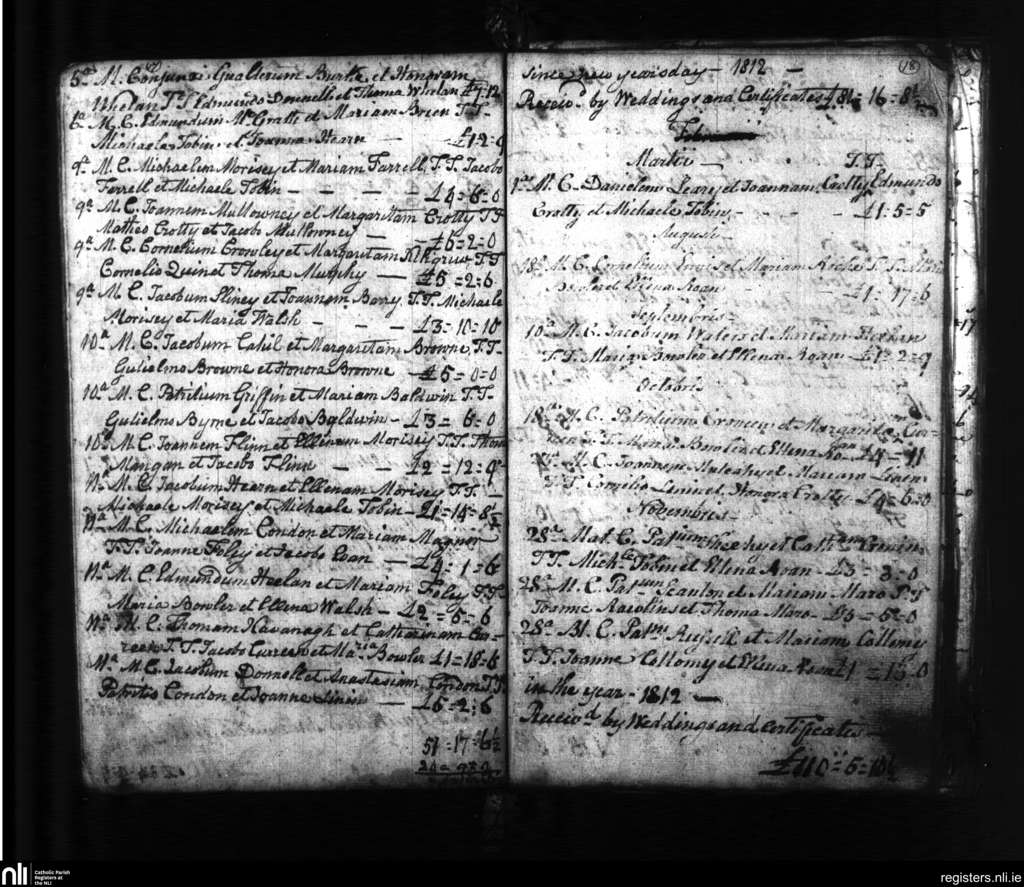 5a M. Conjunxi Gualterum Burke et Honoram
Whelan T.T. Edmundo Donnell et Thoma Whelan £4=12
6a M. C. Edmundum McGrath et Mariam Brien T.T.
Michaele Tobin et Joanna Hearn — £1=2=9
9a M. C. Michaelem Morisey et Mariam Farrell T.T. Jacobo
Farrell et Michaele Tobin — — — £4=6=0
9a M. C. Joannem Mullowney et Margaritam Crotty T.T.
Matheo Crotty et Jacobo Mullowney — £6=2=0
9a M. C. Cornelium Crowley et Margaritam T.T.
Cornelio Quin et Thoma Murphy — £5=2=6
9a M. C. Jacobum Sliney et Joannam Barry T.T. Michaele
Morisey et Maria Walsh — — — £3=10=10
10a M. C. Jacobum Cahil et Margaritam Browne T.T.
Gulielmo Browne et Honora Browne — £5=0=0
10a M. C. Patritium Griffin et Mariam Baldwin T.T.
Gulielmo Byrne et Jacobo Baldwin — £3=6=0
10a M. C. Joannem Flinn et Ellenam Morisey T.T. Thoma
Mangan et Jacobo Flinn — — £2=12=9
11a M. C. Jacobum Hearn et Ellenam Morisey T.T.
Michaele Morisey et Michaele Tobin — £1=14=8½
11a M. C. Michaelem Condon et Mariam Magner
T.T. Joanne Foley et Jacobo Coan — £4=1=6
11a M. C. Edmundum Heelan et Mariam Foley T.T.
Maria Bowler et Ellena Walsh — £2=5=6
11a M. C. Thomam Kavanagh et Catharinam Cur-
reen T.T. Jacobo Curreen et Maria Bowler £1=18=6
11a M. C. Jacobum Donnell et Anastasiam Condon T.T.
Patritio Condon et Joanne — £6=2=6
51=17=6½
18
Since new years day — 1812 —
Receivd by Weddings and Certificates £81=16=8½
Martii — T.T.
1a M. C. Danielem Leary et Joannam Crotty Edmundo
Crotty et Michaele Tobin — — £1=5=5
Augusti
18a M. C. Cornelium et Mariam T.T.
Bowler et Ellena Roan — £1=17=6
Septembris
10a M. C. Jacobum Waters et Mariam
T.T. Maria Bowler et Ellena Roan — £1=2=9
Octobris
18a M. C. Patritium et Margarita
T.T. Maria Bowler et Ellena £4=11
M. C. Joannem Mulcahy et Mariam
T.T. Cornelio et Honora Crotty £4=6=0
Novembris
28a Mat. C. Patium Sheehy et Cathnam
T.T. Michle Tobin et Ellena Roan £3=3=0
28a M. C. Patium Scanlon et Mariam Maro T.T.
Joanne et Thoma Maro £5=5=0
28a M. C. Patm Russell et Mariam Collomy
T.T. Joanne Collomy et Ellena Roan £1=15=0
in the year — 1812 —
Receivd by Weddings and Certificates —
£110=5=10½
nli
Catholic Parish
Registers at
the NLI
registers.nli.ie